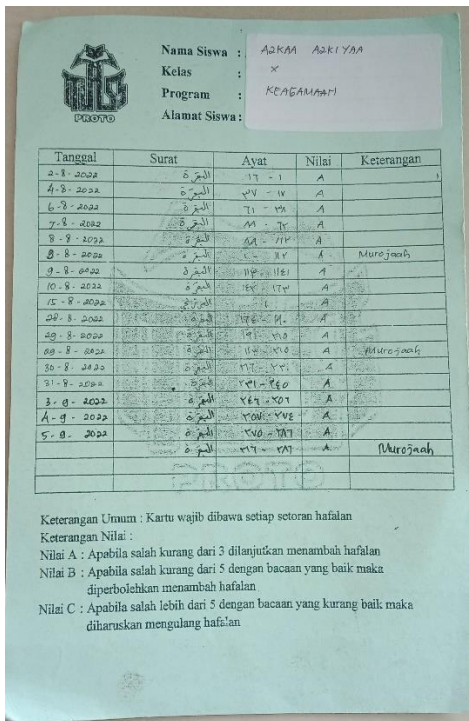 PROTO
Nama Siswa : AZKAA AZKIYAA
Kelas : X
Program : KEAGAMAAN
Alamat Siswa :
Tanggal Surat Ayat Nilai Keterangan
2-8-2022 البقرة ١٦ - ١ A
4-8-2022 البقرة ٣٧ - ١٧ A
6-8-2022 البقرة ٦١ - ٣٨ A
7-8-2022 البقرة ٨٨ - ٦٢ A
8-8-2022 البقرة ٨٩ - ١١٢ A
8-8-2022 البقرة ١١٢ A Murojaah
9-8-2022 البقرة ١١٣ - ١٤١ A
10-8-2022 البقرة ١٦٣ A
15-8-2022 A
28-8-2022 البقرة A
29-8-2022 البقرة ١٩١ - ٢١٥ A
29-8-2022 البقرة ١١٣ - ٢١٥ A Murojaah
30-8-2022 البقرة ٢١٦ - ٢٣٠ A
31-8-2022 البقرة ٢٣١ - ٢٤٥ A
3-9-2022 البقرة ٢٤٦ - ٢٥٦ A
4-9-2022 البقرة ٢٥٧ - ٢٧٤ A
5-9-2022 البقرة ٢٧٥ - ٢٨٦ A
البقرة ٢١٦ - ٢٨٦ Murojaah
Keterangan Umum : Kartu wajib dibawa setiap setoran hafalan
Keterangan Nilai :
Nilai A : Apabila salah kurang dari 3 dilanjutkan menambah hafalan
Nilai B : Apabila salah kurang dari 5 dengan bacaan yang baik maka
diperbolehkan menambah hafalan
Nilai C : Apabila salah lebih dari 5 dengan bacaan yang kurang baik maka
diharuskan mengulang hafalan